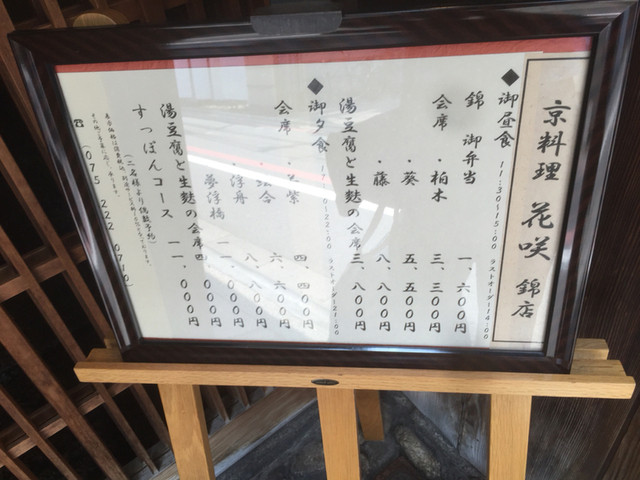 京料理 花咲 錦店
◆御昼食 11:30~15:00 ラストオーダー14:00
錦 御弁当 一、六〇〇円
会席・柏木 三、三〇〇円
・葵 五、五〇〇円
・藤 八、八〇〇円
湯豆腐と生麩の会席 三、八〇〇円
◆御夕食 22:00 ラストオーダー21:00
会席・紫 四、四〇〇円
六、六〇〇円
・浮舟 八、八〇〇円
・夢浮橋 一一、〇〇〇円
湯豆腐と生麩の会席 四、〇〇〇円
すっぽんコース 一一、〇〇〇円
(二名様より御予約)
☎(075 222 0710)